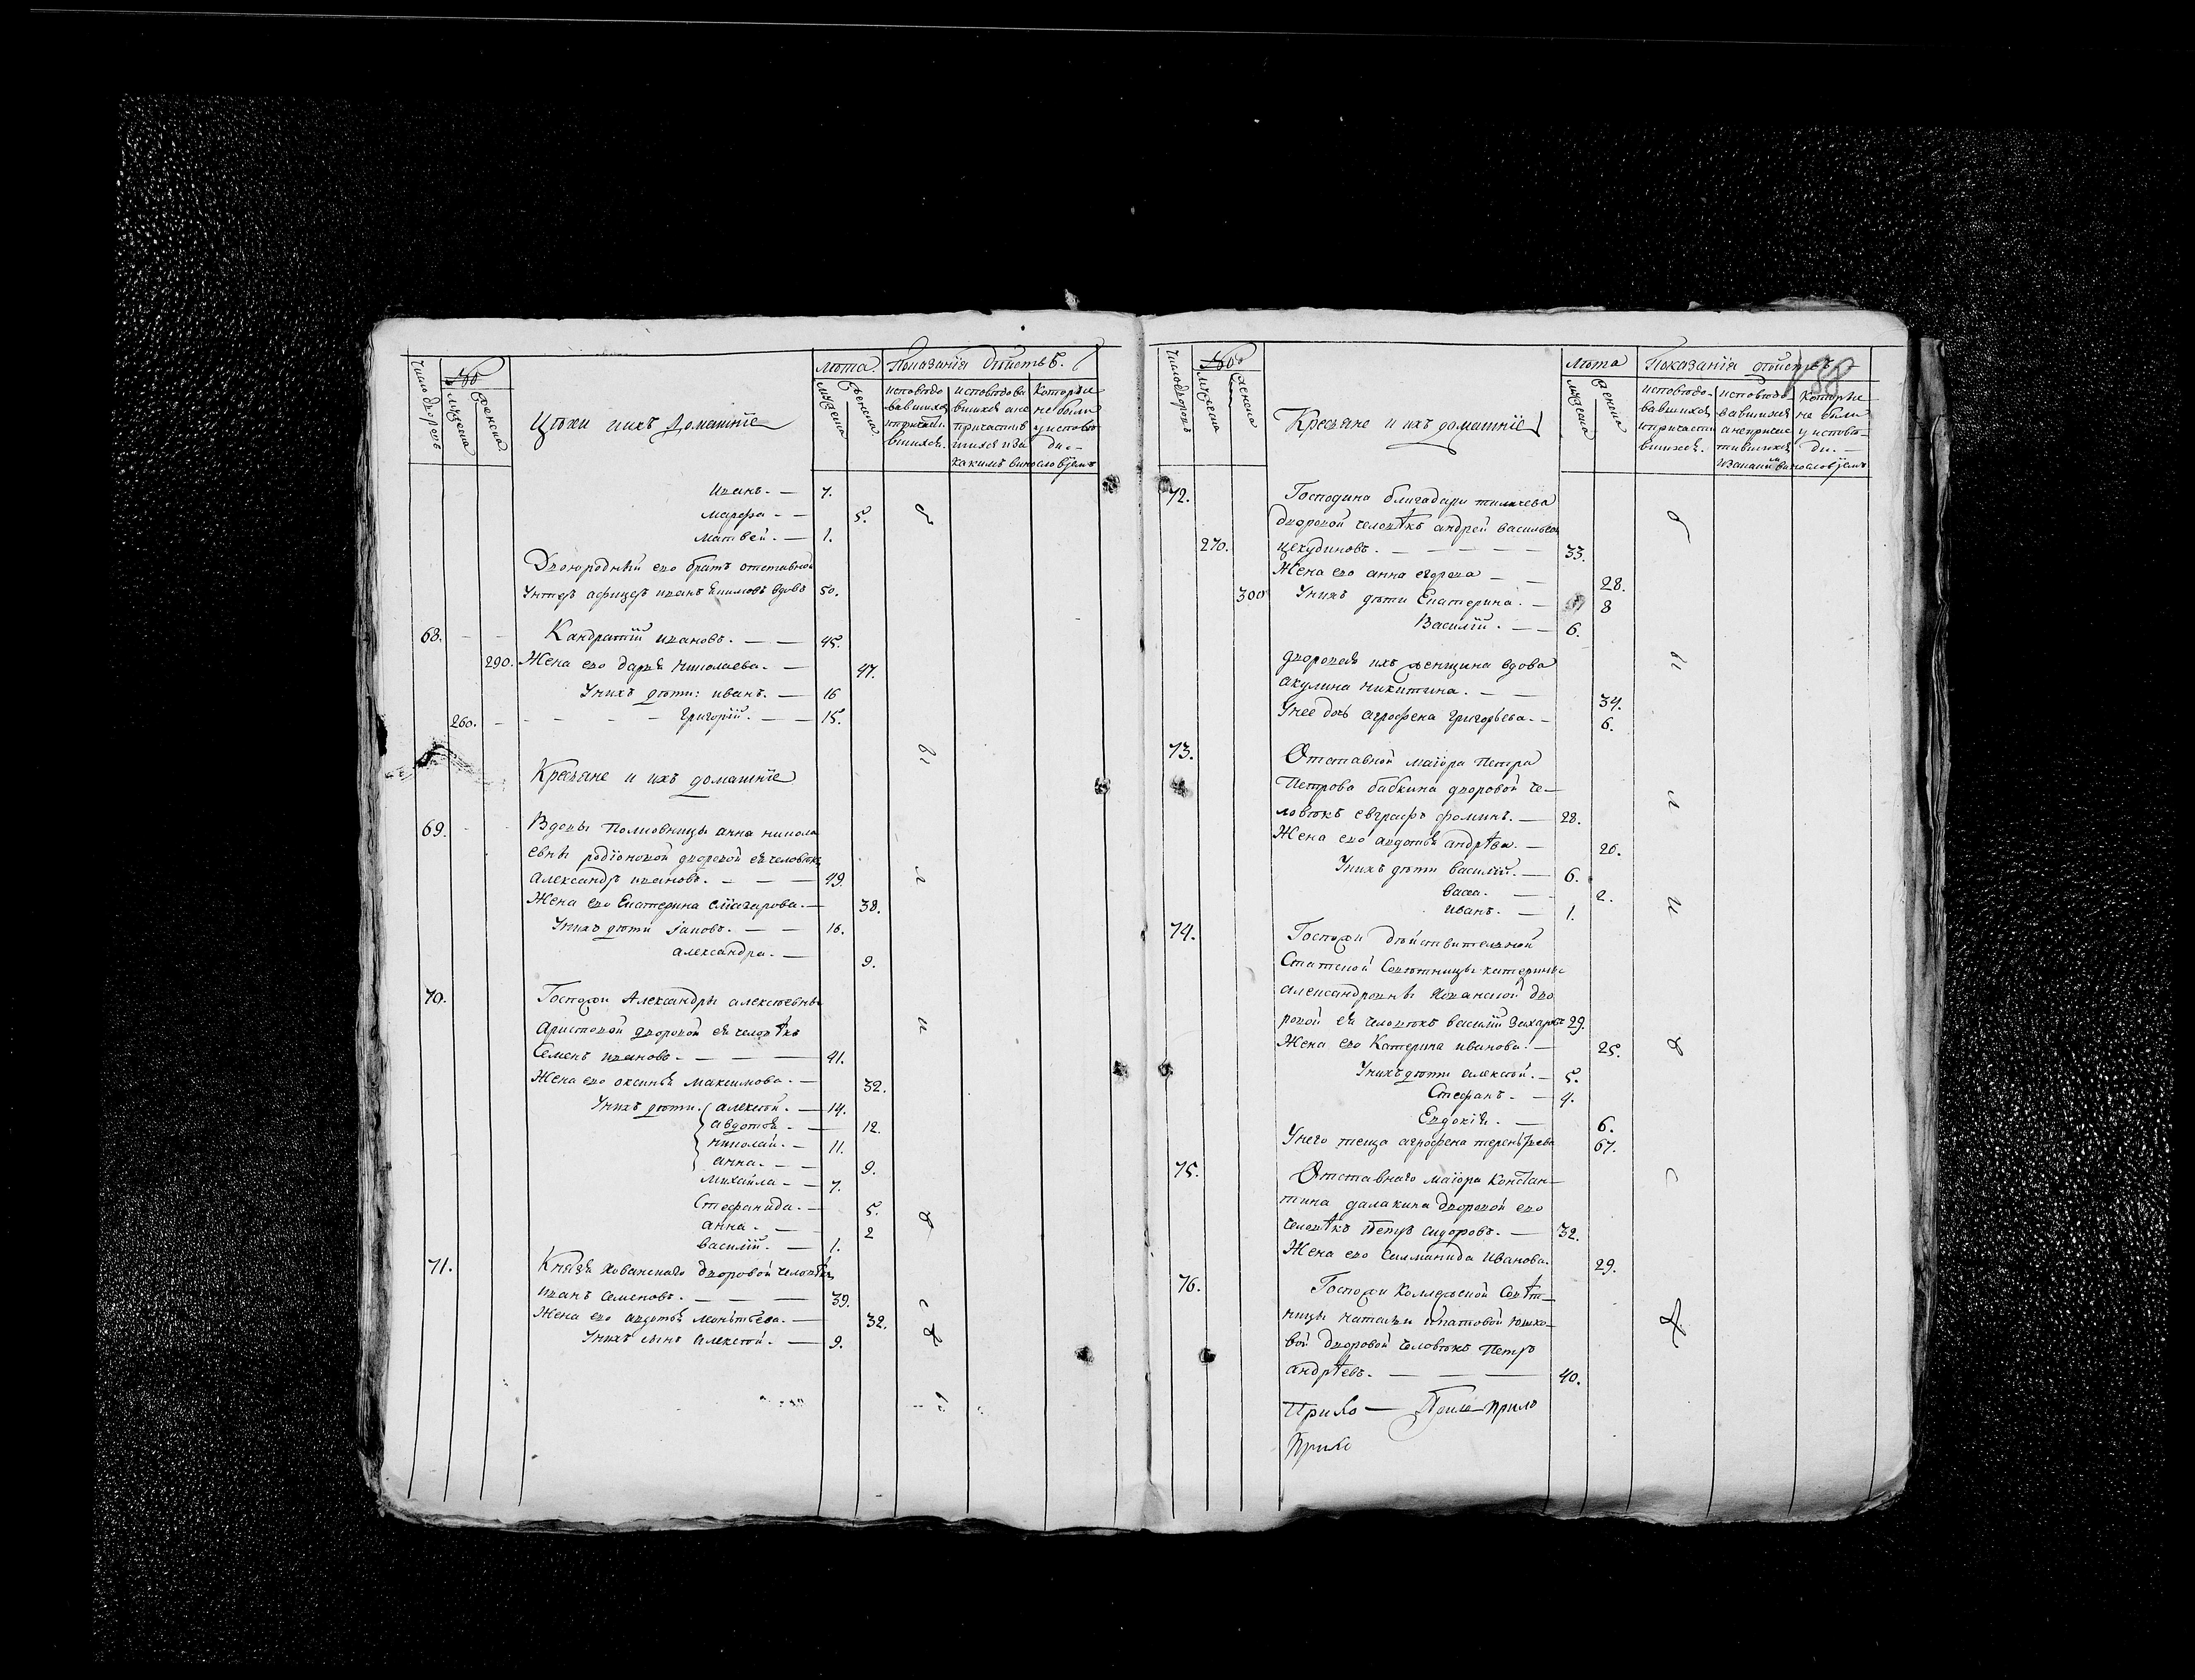 Число дворовъ
№
мужеска
женска
Цѣхи ихъ домашніе
лѣта.
мужеска
женска
Показанія дѣйствъ.
исповѣдо
вавшихся
и причасти
вшихся.
исповѣдова
вшихся а не
причастив
шихся и за
какимъ винословіемъ
Которые
не были
у исповѣ
ди.
Иванъ. — 7.
Марфа — — 5.
Матвей. — 1.
Двоюродный его братъ отставной
Унтеръ афицеръ иванъ Екимовъ вдовъ 50.
68. Кандратій ивановъ. — — 45.
290. Жена его дарья николаева. — 47.
У нихъ дѣти: иванъ. — 16
260. — — — — Григорій. — — 15.
Кресьяне и ихъ домашніе
69. Вдовы Полковницы анна никола
евны родіоновой дворовой ея человѣкъ
александръ ивановъ. — — — 49.
Жена его Екатерина — 38.
У нихъ дѣти іаковъ. — — 16.
александра. — 9.
70. Госпожи Александры алексѣевны
Аристовой дворовой ея человѣкъ
Семенъ ивановъ — — — — 41.
Жена его оксинья максимова. — 32.
У нихъ дѣти. алексѣй. — 14.
авдотья. — 12.
николай. — 11.
анна. — — 9.
михайла — — 7.
Стефанида. — 5.
анна. — — 2
василій. — 1.
71. Князя хованскаго дворовой человѣкъ
иванъ Семеновъ. — — — 39.
Жена его авдотья леонтьева. — 32.
У нихъ сынъ алексѣй. — 9.
Число дворовъ
№
мужеска
женска
Кресьяне и ихъ домашніе
лѣта
мужеска
женска
Показанія дѣйствъ
488
исповѣдо-
вавшихся
и причасти
вшихся.
исповѣдо-
вавшихся
а неприча
тившихся
и за какимъ винословіемъ
Которые
не были
у исповѣ-
ди. —
72. Господина бригадира
дворовой человѣкъ андрей васильевъ
270. — — — — — 33.
Жена его анна егорова — — 28.
300 У нихъ дѣти Екатерина. — 8
Василій. — — 6.
дворовая ихъ женщина вдова
акулина никитина. — — 34.
У нее дочь агрофена григорьева. — 6.
73. Отставной маіора Петра
Петрова бабкина дворовой че—
ловѣкъ евграфъ фоминъ. — 28.
Жена его авдотья андрѣева. — 26.
У нихъ дѣти василій. — 6.
васса. — 2.
иванъ. — 1.
74. Госпожи дѣйствительной
Статской Совѣтницы катерины
александровны Хованской дво
ровой ея человѣкъ василій Захаровъ 29.
Жена его Катерина иванова. — 25.
У нихъ дѣти алексѣй. — 5.
Стефанъ. — 4.
Евдокія. — 6.
У него теща агрофена терентьева 67.
75. Отставнаго маіора Констан—
тина далакина дворовой его
человѣкъ Петръ сидоровъ. — 32.
Жена его Иванова. 29.
76. Госпожи Коллежской Совѣт—
ницы натальи юшко—
вой дворовой человѣкъ Петръ
андрѣевъ. — — — 40.